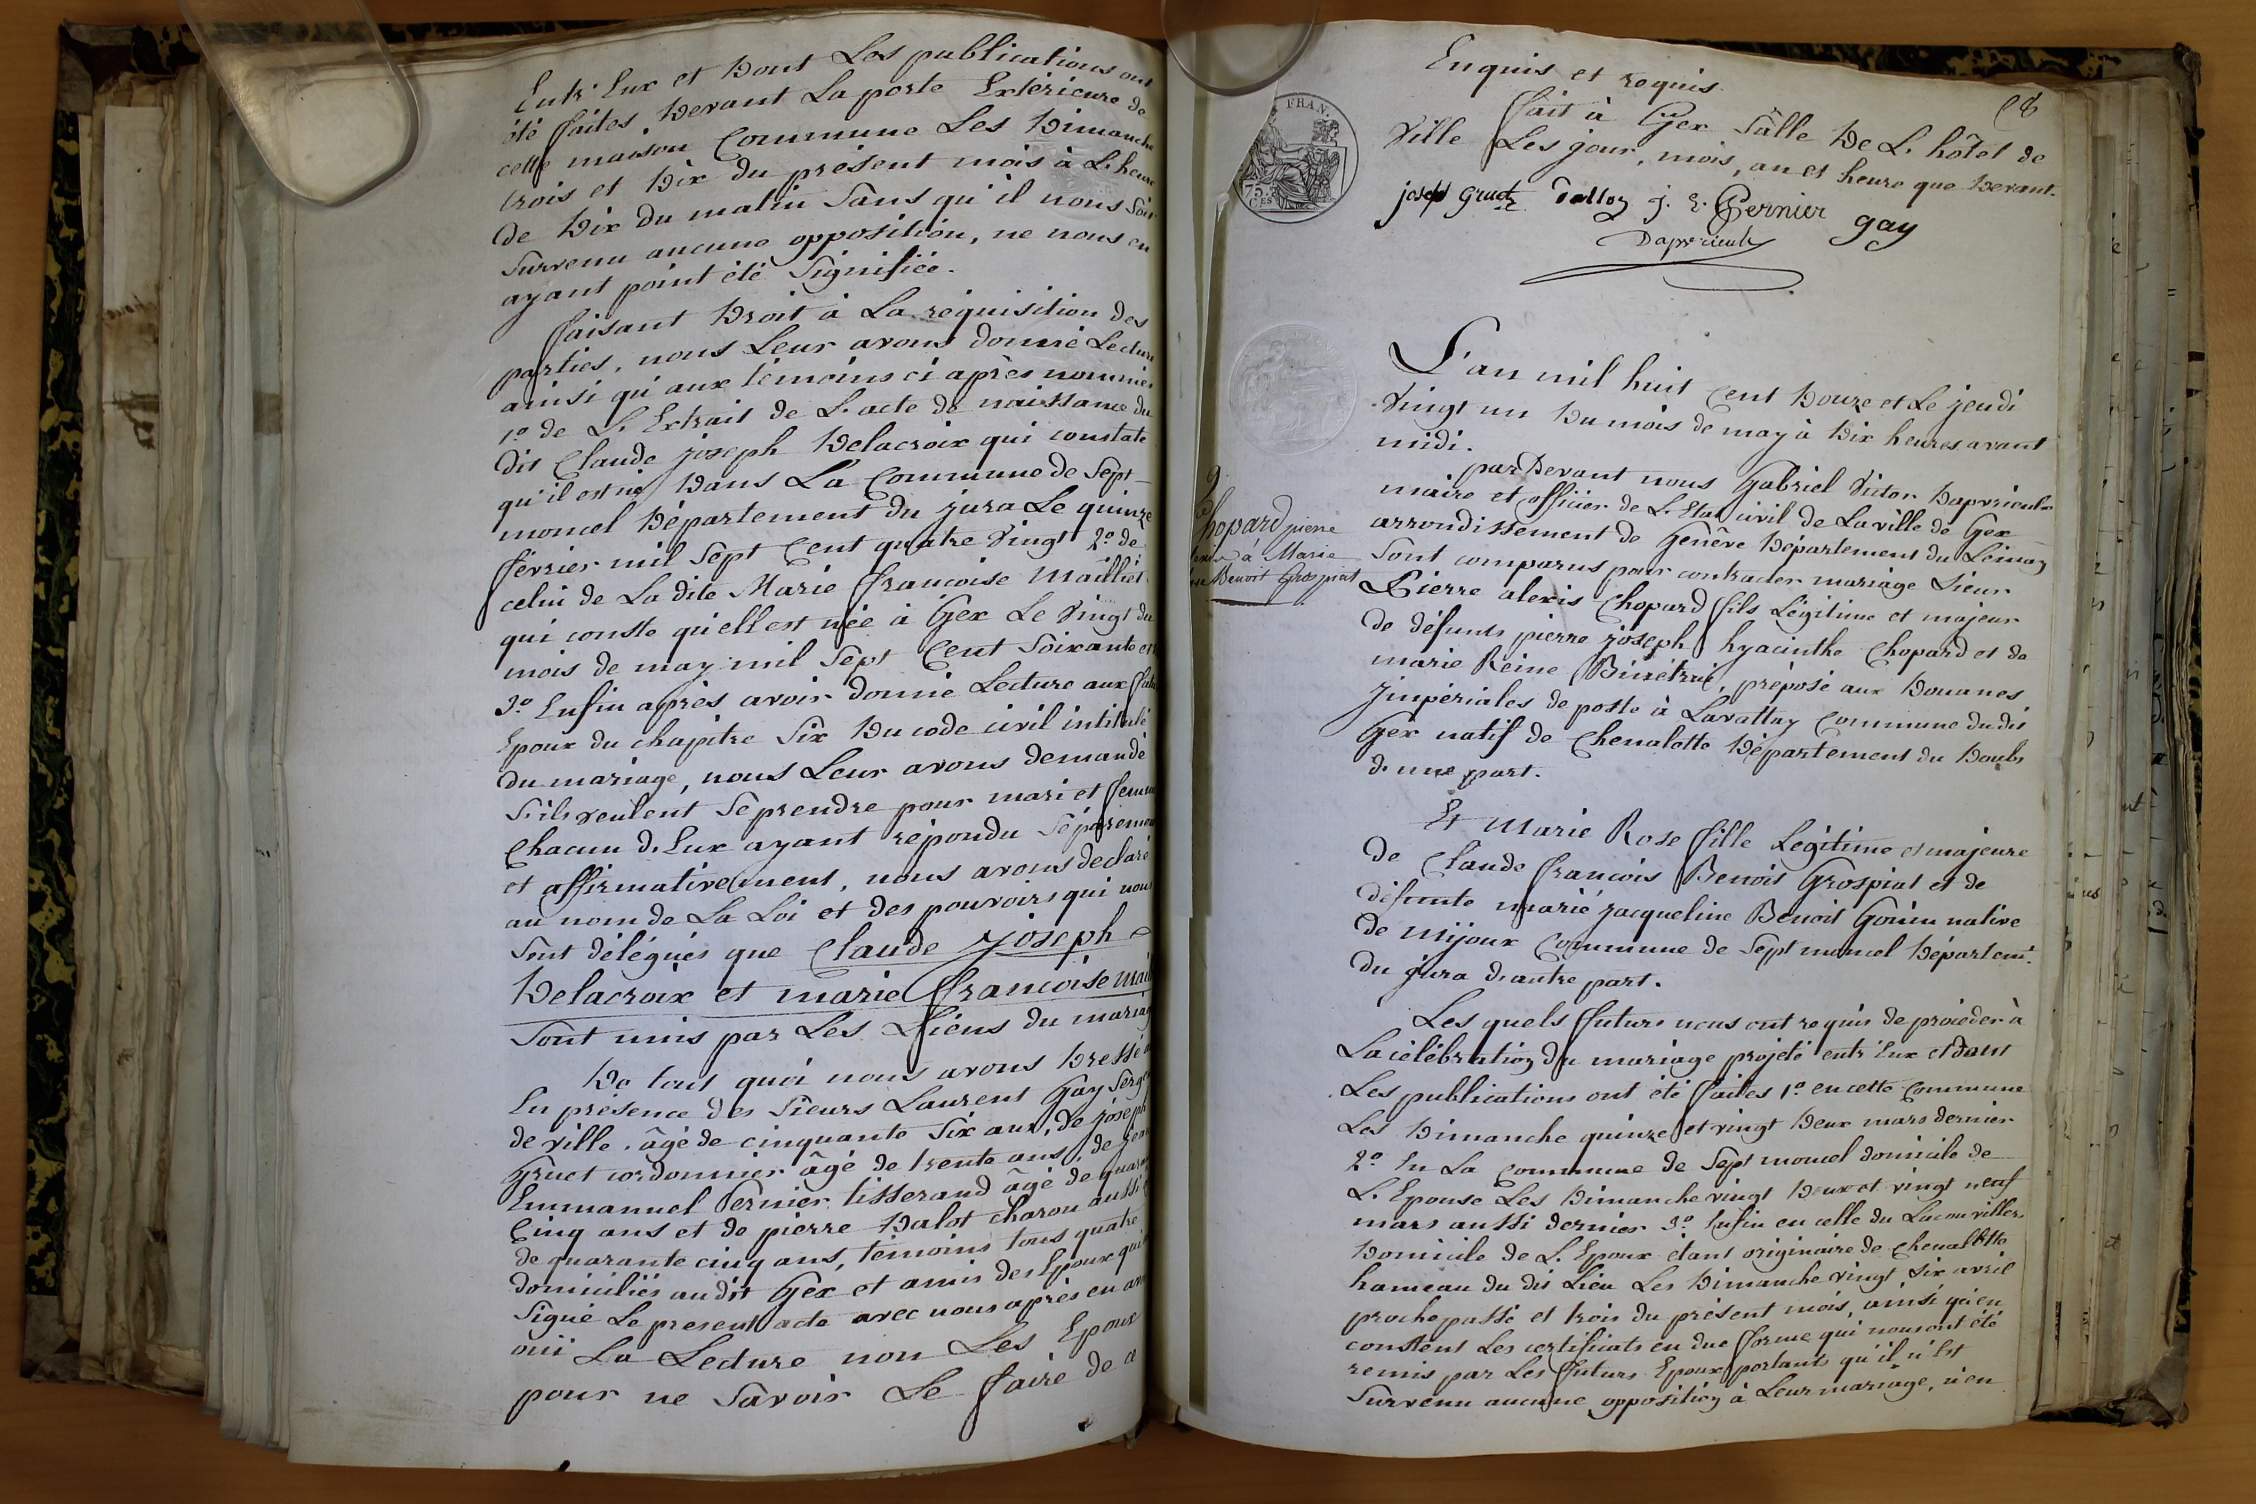 Entr'Eux et Dont Les publications ont
été faites Devant La porte Extérieure de
cette maison Commune Les Dimanche
trois et Dix du présent mois à L'heure
de Dix du matin Sans qu'il nous Soit
Survenu aucune opposition, ne nous en
ayant point été Signifiée.
faisant Droit à La réquisition des
parties, nous Leur avons donné Lecture
ainsi qu'aux témoins ci après nommés
1.o de L'Extrait de L'acte de naissance du
dit Claude joseph Delacroix qui constate
qu'il est né Dans La Commune de Sept
moncel Département du jura Le quinze
février mil Sept Cent quatre Vingt 2.o de
celui de La dite Marie françoise Maillet
qui conste qu'ell est née à Gex Le Vingt du
mois de may mil Sept Cent Soixante et
3.o Enfin après avoir donné Lecture aux futurs
Epoux du chapitre Six Du code civil intitulé
du mariage, nous Leur avons demandé
S'ils veulent Se prendre pour mari et femme
Chacun d'Eux ayant répondu Séparement
et affirmativement, nous avons declaré
au nom de La Loi et des pouvoirs qui nous
Sont délégués que Claude Joseph
Delacroix et marie françoise Mail
Sont unis par Les Liens du mariage
De tout quoi nous avons Dressé a
En présence des Sieurs Laurent Gay Serge
de ville, âgé de cinquante Six ans, de joseph
Gruet cordonnier âgé de trente ans, de jean
Emmanuel Pernier tisserand âgé de quara
Cinq ans et de pierre Dalot charon aussi
de quarante cinq ans, témoins tous quatre
domiciliés audit Gex et amis des Epoux qui
Signé Le present acte avec nous après en av
oui La Lecture non Les Epoux
pour ne Savoir Le faire de ce
Enquis et requis.
fait à Gex Sâlle De L'hôtel de
Ville Les jour, mois, an et heure que Devant.
joseph gruet Dalloz j. E. Pernier gay
Dapvrieulx
FRAN.
75.
CES
L'an mil huit Cent Douze et Le jeudi
Vingt un Du mois de may à Dix heures avant
midi.
par Devant nous Gabriel Victor Dapvrieulx
maire et officier de L'Etat civil de La ville de Gex
arrondissement de Genève Département du Léman
Sont comparus pour contracter mariage Sieur
Pierre alexis Chopard fils Légitime et majeur
de défunts pierre joseph hyacinthe Chopard et de
marie Reine Binétruÿ, préposé aux Douanes
Jmpériales de poste à Lavattay Commune dudit
Gex natif de Chenalotte Département du Doubs
d'une part.
9.
Chopard pierre
alexis à Marie
Rose Benoit Grospiat
Et Marie Rose fille Légitime et majeure
de Claude françois Benoit Grospiat et de
défunte marie jacqueline Benoit Gonin native
de Mijoux Commune de Sept moncel Départem.t
du jura d'autre part.
Les quels futurs nous ont requis de procéder à
La célébration du mariage projeté entr'Eux et dont
Les publications ont été faites 1.o en cette Commune
Les Dimanche quinze et vingt Deux mars dernier
2.o En La Commune de Sept moncel domicile de
L'Epouse Les Dimanche vingt Deux et vingt neuf
mars aussi dernier 3.o Enfin en celle du Lucouvillers
Domicile de L'Epoux étant originaire de Chenalotte
hameau du dit Lieu Les Dimanche vingt Six avril
proche passé et trois du présent mois, ainsi qu'en
constent Les certificats en due forme qui nous ont été
remis par Les futurs Epoux portants qu'il n'Est
Survenu aucune opposition à Leur mariage, n'en